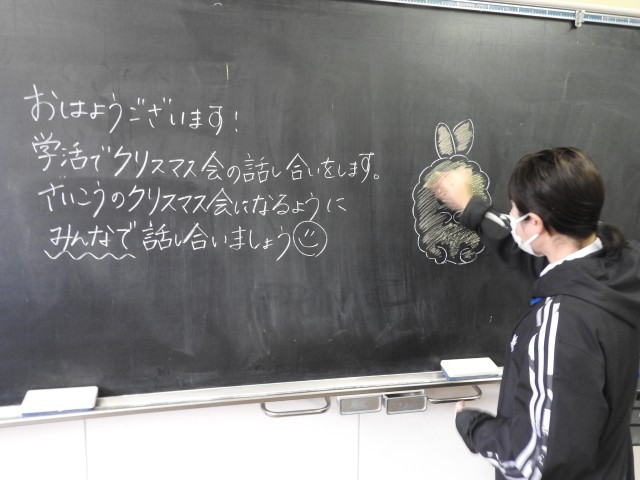 おはようございます!
学活でクリスマス会の話し合いをします。
さいこうのクリスマス会になるように
みんなで話し合いましょう